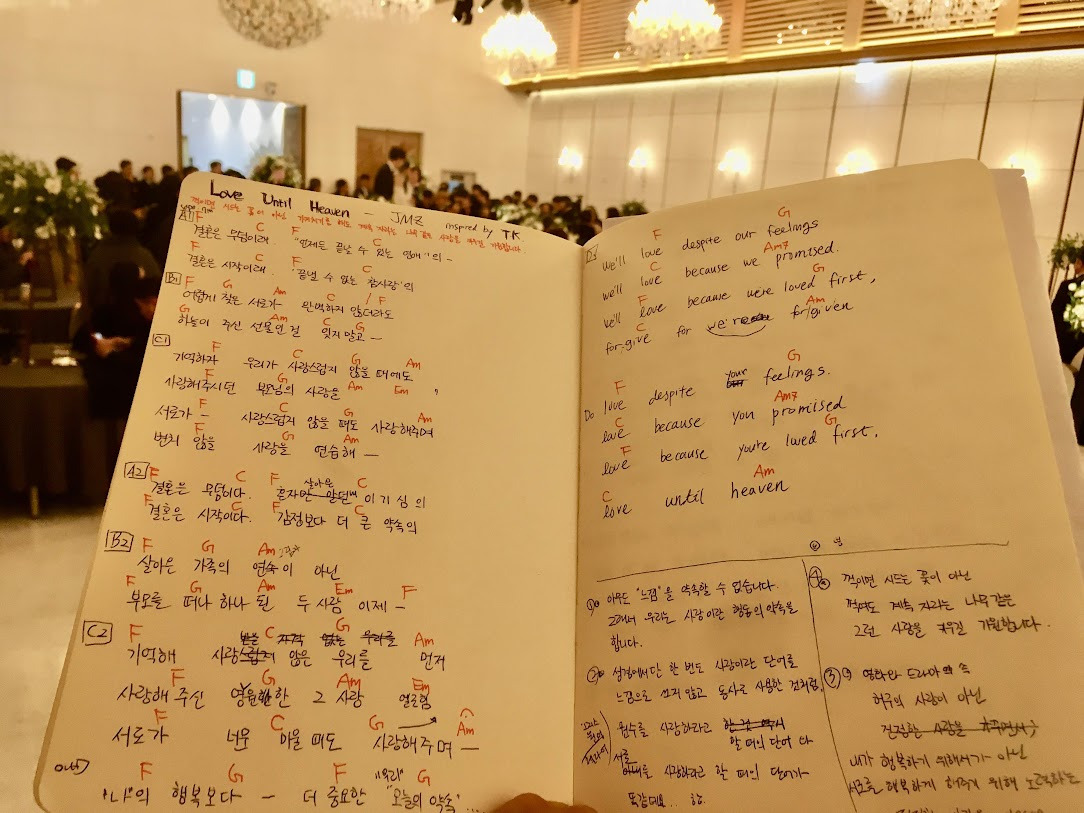 Love Until Heaven - JMZ
inspired by TK.
꺾이면 시드는 꽃이 아닌
A1
F C F C
결혼은 무덤이래. "언제든 끝날 수 있는 연애"의 -
F C F C
결혼은 시작이래. "끝낼 수 없는 참사랑"의
B1
F G Am C / F
어렵게 찾은 서로가 완벽하지 않더라도
G Am C G
하늘이 주신 선물인 걸 잊지 말고 -
C1
F C G Am
기억하자 우리가 사랑스럽지 않을 때에도
F G Am Em
사랑해주시던 부모님의 사랑을
F C G Am
서로가 - 사랑스럽지 않을 때도 사랑해주며
F G Am
변치 않을 사랑을 연습해 -
A2
F C F C
결혼은 무덤이다. 혼자만 알던 살아온 이기심의
F C F C
결혼은 시작이다. 감정보다 더 큰 약속의
B2
F G Am
살아온 가족의 연속이 아닌
F G Am Em F
부모를 떠나 하나 된 두 사람 이제 -
C2
F C G Am
받을 자격 없는 우리를
기억해 사랑스럽지 않은 우리를 먼저
F G Am Em
사랑해 주신 영원한 그 사랑
F C G Am
서로가 너무 미울 때도 사랑해주며 -
out)
F G F "우리" G
"나"의 행복보다 - 더 중요한 "오늘의 약속"...
F G
We'll love despite our feelings
C Am7
we'll love because we promised.
F G
we'll love because we're loved first,
C Am
forgive for we're forgiven
F G
Do love despite your feelings.
C Am7
love because you promiised
F G
love because you're loved first,
C Am
love until heaven
① 아무도 "느낌"을 약속할 수 없습니다.
그래서 우리는 사랑이란 행동의 약속을
합니다.
② 성경에서 단 한 번도 사랑이란 단어를
느낌으로 쓰지 않고 동사로 사용한 것처럼,
원수를 사랑하라고 한 것 역시
할 때의 단어 다
서로
아내를 사랑하라고 할 때의 단어가
똑같데요...
④ 꺾이면 시드는 꽃이 아닌
꺾여도 계속 자라는 나무같은
그런 사랑을 키우길 기원합니다.
③ 영화와 드라마 속
허구의 사랑이 아닌
진정한 사랑을 키우면서,
내가 행복하기 위해서가 아닌
서로를 행복하게 해주기 위해 노력하는